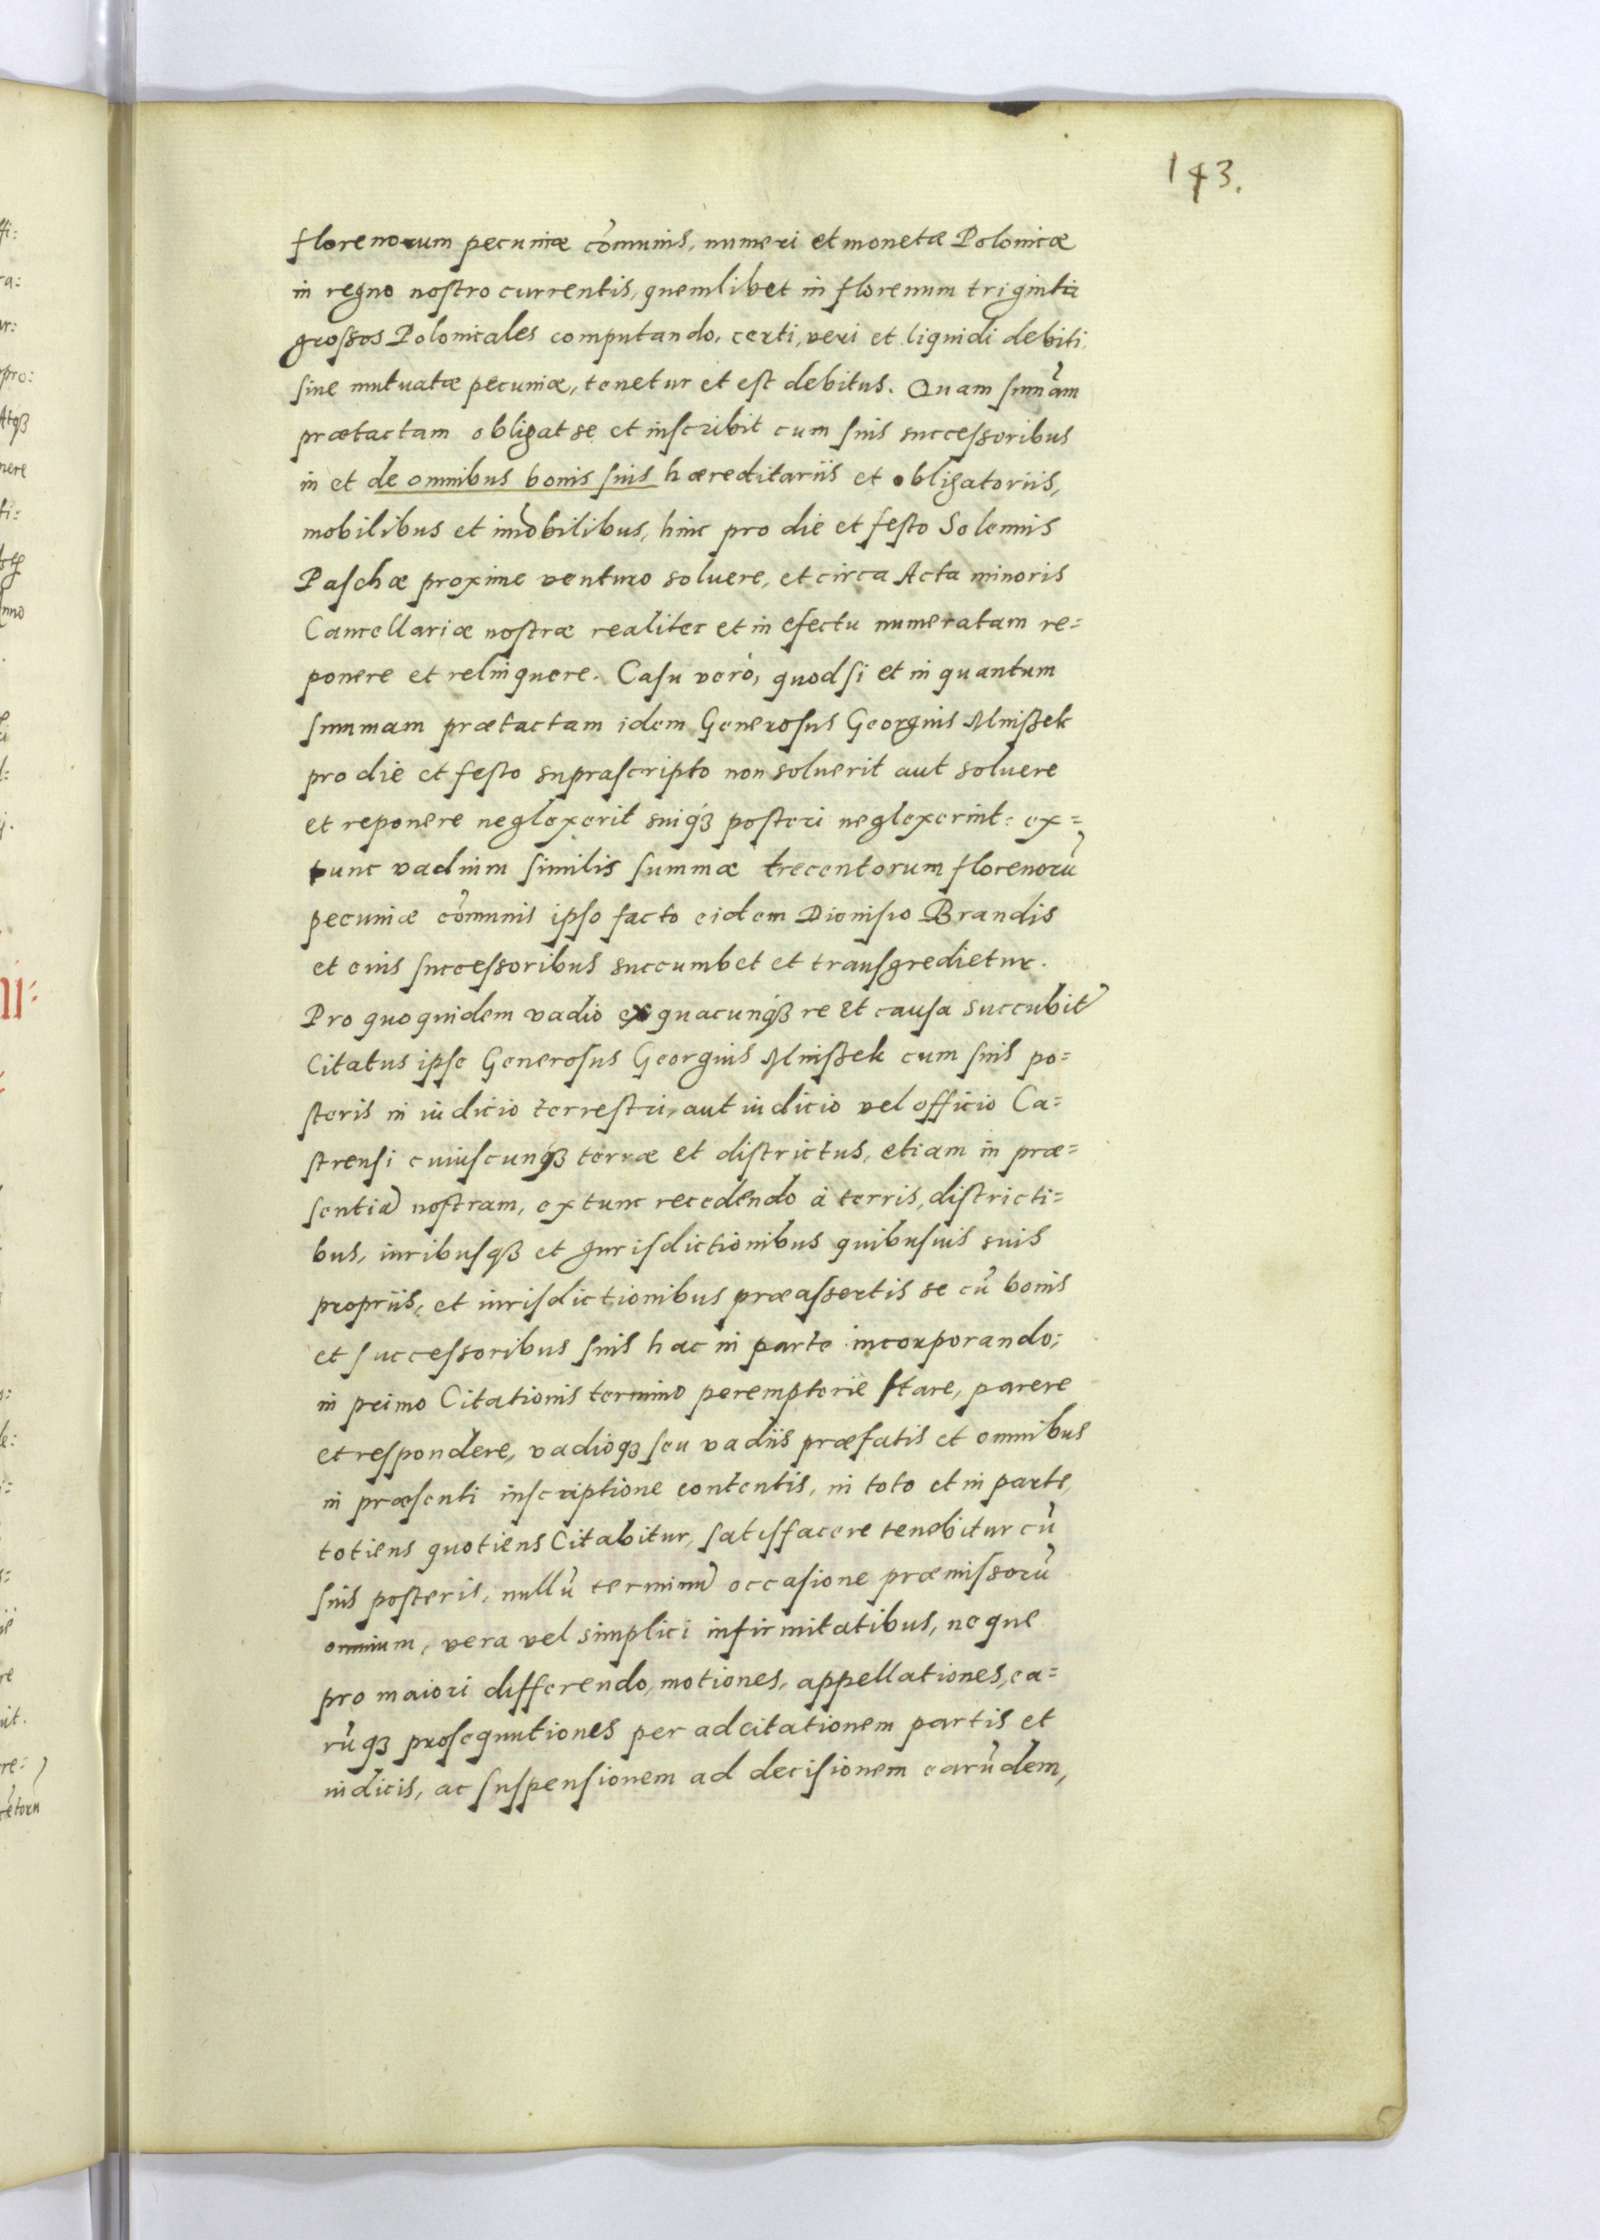 143.
florenorum pecuniæ cõmunis, numeri et monetæ Polonicæ
in regno nostro currentis, quemlibet in florenum triginta
grossos Polonicales computando, certi, veri et liquidi debiti
siue mutuatæ pecuniæ, tenetur et est debitus. Quam sum̃am
prætactam obligat se et inscribit cum suis successoribus
in et de omnibus bonis suis hæreditariis et obligatoriis,
mobilibus et im̃obilibus, hinc pro die et festo Solennis
Paschæ proxime venturo soluere, et circa Acta minoris
Cancellariæ nostræ realiter et in efectu numeratam re=
ponere et relinquere. Casu verò, quod si et in quantum
summam prætactam idem Generosus Georgius Mnißek
pro die et festo suprascripto non soluerit aut soluere
et reponere neglexerit suiqꝫ posteri neglexerint: ex=
tunc vadium similis summæ trecentorum florenorũ
pecuniæ cõmunis ipso facto eidem Dionisio Brandis
et eius successoribus succumbet et transgredietur.
Pro quoquidem vadio ex quacunqꝫ re et causa succubit̃
Citatus ipse Generosus Georgius Mnißek cum suis po=
steris in iudicio terrestri, aut iudicio vel officio Ca=
strensi cuiuscunqꝫ terræ et districtus, etiam in præ=
sentiã nostram, extunc recedendo à terris, districti=
bus, iuribusqꝫ et Jurisdictionibus quibusuis suis
propriis, et iurisdictionibus præassertis se cũ bonis
et successoribus suis hac in parte incorporando;
in primo Citationis termino peremptorie stare, parere
et respondere, vadioqꝫ seu vadiis præfatis et omnibus
in præsenti inscriptione contentis, in toto et in parte,
totiens quotiens Citabitur, satisfacere tenebitur cũ
suis posteris, nullũ terminũ occasione præmissorũ
omnium, vera vel simplici infirmitatibus, neque
pro maiori differendo, motiones, appellationes, ea=
rũqꝫ prosequutiones per adcitationem partis et
iudicis, ac suspensionem ad decisionem earũdem,